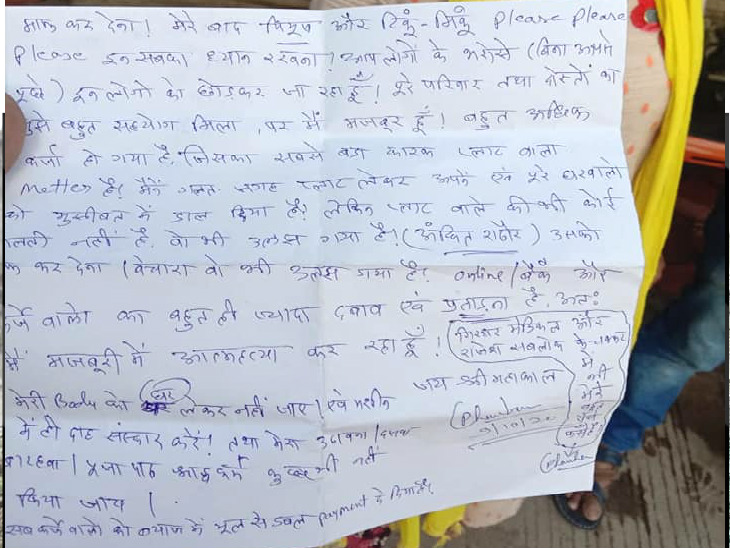 माफ कर देना! मेरे बाद और रिंकू-मिंकू Please Please
Please इन सबका ध्यान रखना! आप लोगों के भरोसे (बिना आपसे
पूछे) इन लोगों को छोड़कर जा रहा हूँ! पूरे परिवार तथा दोस्तों का
मुझे बहुत सहयोग मिला, पर मैं मजबूर हूँ! बहुत अधिक
कर्जा हो गया है, जिसका सबसे बड़ा कारक प्लाट वाला
Matter है! मैंने गलत जगह प्लाट लेकर अपने एवं पूरे घरवालो
को मुसीबत में डाल दिया है! लेकिन प्लाट वाले की भी कोई
गलती नहीं है, वो भी उलझ गया है! (अंकित राठौर) उसको
कर देना! बेचारा वो भी उलझ गया है! online/बैंक और
कर्जे वालो का बहुत ही ज्यादा दबाव एवं प्रताड़ना है, अतः
मैं मजबूरी में आत्महत्या कर रहा हूँ!
गिरधर मेडिकल और
राजेश सबलोक के चक्कर
में
नहीं
मैंने
जय श्री महाकाल
मेरी Body को घर लेकर नहीं जाए! एवं मशीन
में ही दाह संस्कार करें! तथा मेरा उठावना/दसवा
बारहवा/पूजा पाठ श्राद्ध कर्म कुछ भी नहीं
किया जाये!
सब कर्जे वालो को ब्याज में मूल से डबल payment दे दिया है!